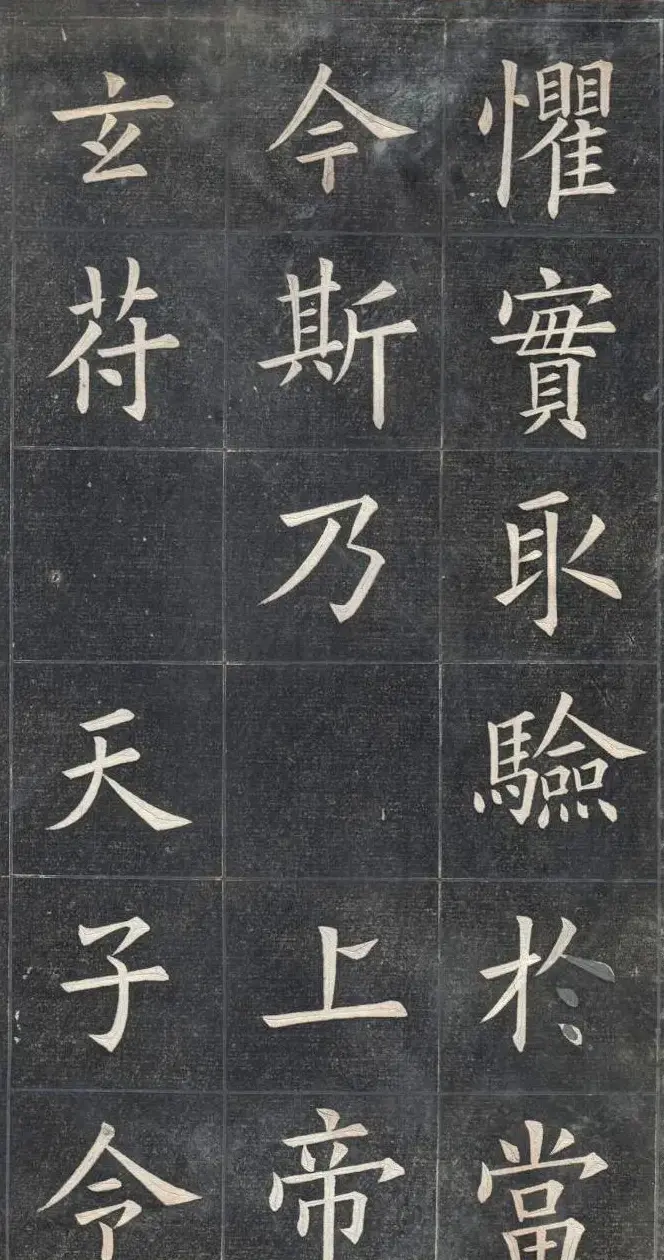 懼實取驗於當
今斯乃上帝
玄苻天子令